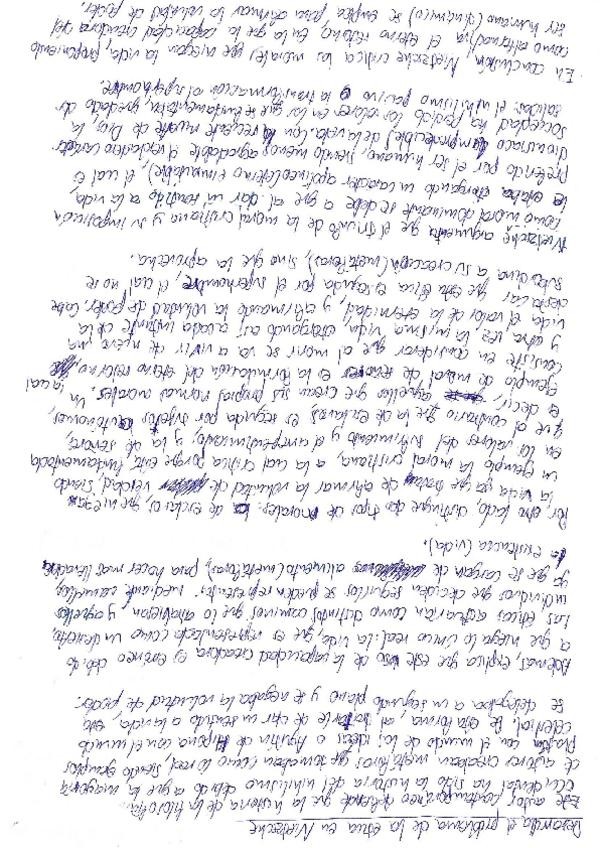 Desarrolla el problema de la ética en Nietzsche
Este autor contemporáneo defiende que la historia de la filosofía
occidental ha sido la historia del nihilismo debido a que la mayoría
de autores creaban metáforas y se tomaban como lo real, siendo ejemplos
Platón con el mundo de las ideas o Agustín de Hipona con el mundo
celestial. De esta forma, al darle otro sentido a la vida, ésta
se delegaba a un segundo plano y se negaba la voluntad de poder.
Además, explica que este uso de la capacidad creadora es erróneo debido
a que niega lo único real: la vida, que es representada como un desierto.
Las éticas actuarían como distintos caminos que lo atraviesan y aquellos
individuos que deciden seguirlos pueden representarse mediante camellos,
ya que se cargan de alimento (metáforas), para hacer más llevadera
la existencia (vida).
Por otro lado, distingue dos tipos de morales: la de esclavos, que niegan
la vida ya que tratan de afirmar la voluntad de verdad, siendo
un ejemplo la moral cristiana, a la cual critica porque está fundamentada
en los valores del sufrimiento y el arrepentimiento; y la de señores,
que al contrario que la de esclavos, es seguida por sujetos autónomos,
es decir, aquellos que crean sus propias normas morales. Un
ejemplo de moral de es la formulación del eterno retorno, la cual
consiste en considerar que al morir se va a vivir de nueva una
y otra vez la misma vida, otorgando así a cada instante de la
vida el valor de eternidad, y afirmando la voluntad de poder. Cabe
destacar que esta ética es seguida por el superhombre, el cual no se
subordina a su creación (metáforas), sino que la aprovecha.
Nietzsche argumenta que el triunfo de la moral cristiana y su imposición
como moral dominante se debe a que al dar un sentido a la vida,
le estaba otorgando un carácter apolíneo (eterno e inmutable), el cual es
preferido por el ser humano, siendo menos agradable el verdadero carácter
dionisíaco de la vida. Con la reciente muerte de Dios, la
sociedad ha perdido los valores en los que se fundamentaba, quedando dos
salidas: el nihilismo pasivo o la transformación al superhombre.
En conclusión, Nietzsche critica las morales que niegan la vida, proponiendo
como alternativa el eterno retorno, en la que la capacidad creadora del
ser humano (dinámico) se emplea para afirmar la voluntad de poder.